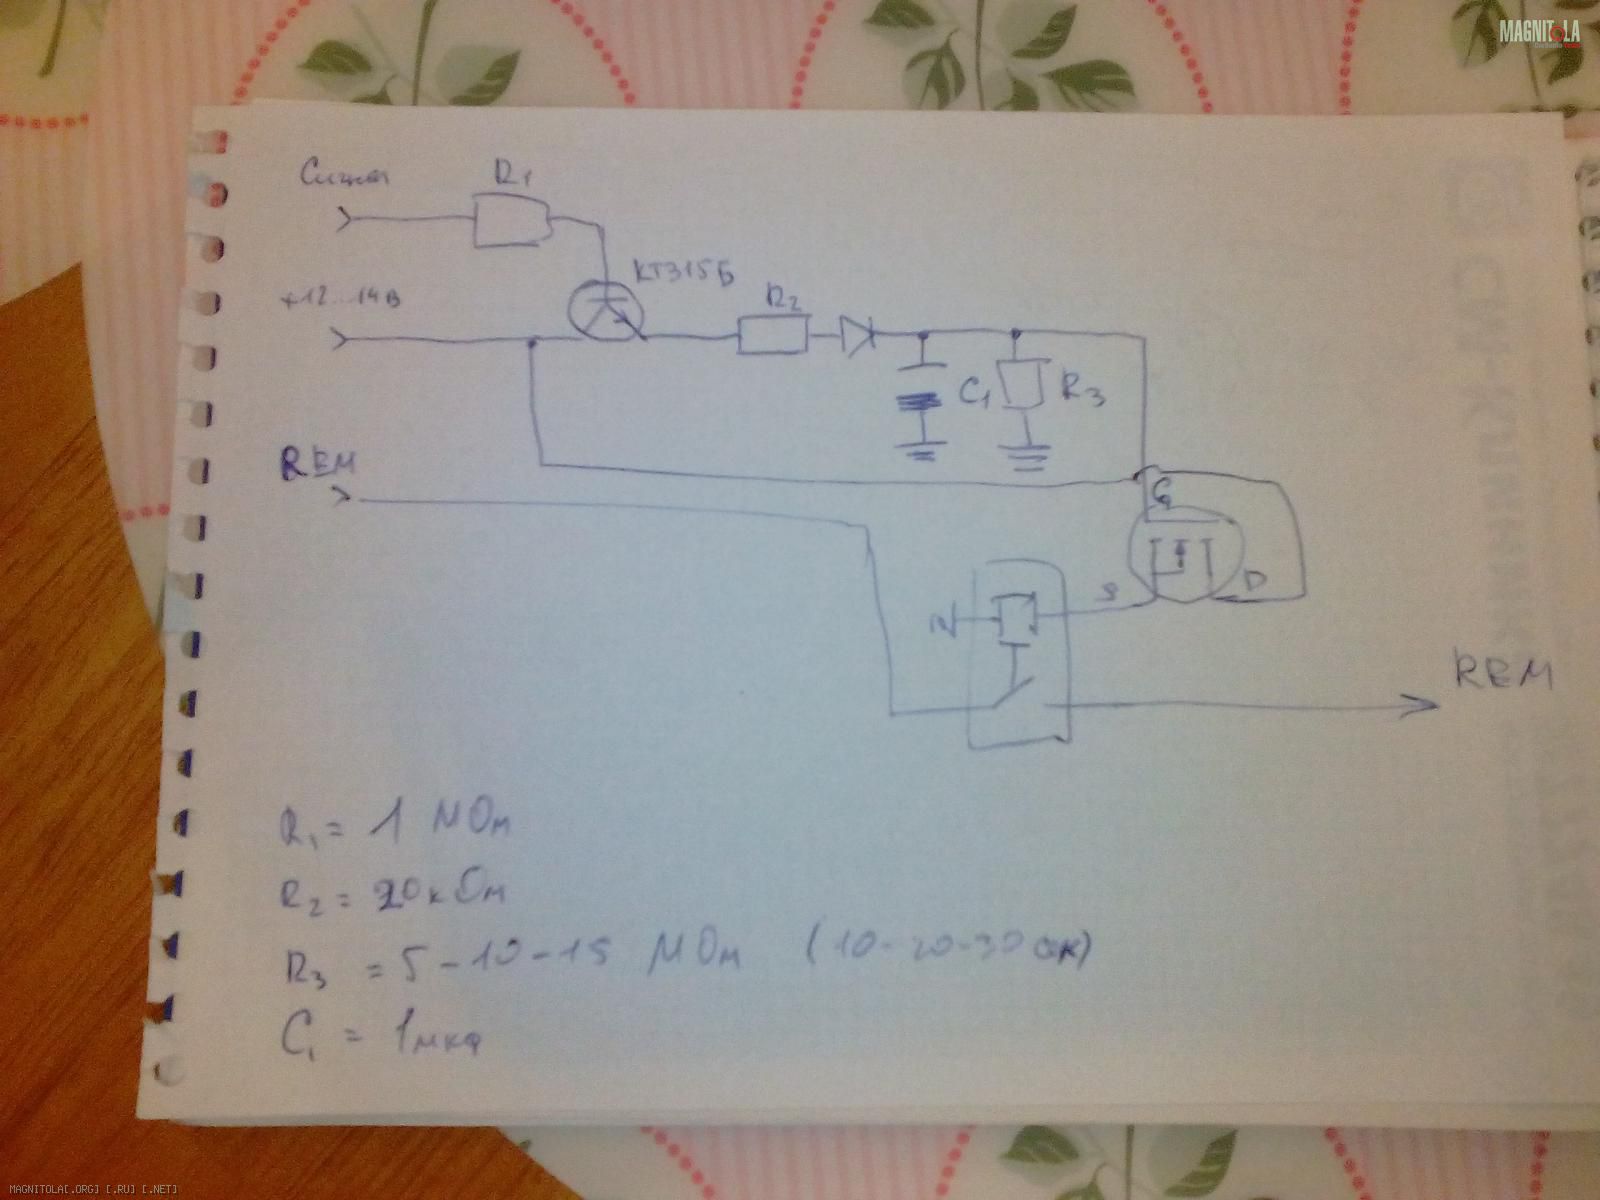 MAGNITOLA
Сигнал
R1
+12...14В
КТ315Б
R2
C1
R3
REM
G
S
D
REM
R1 = 1 МОм
R2 = 20кОм
R3 = 5-10-15 МОм (10-20-30 сек)
C1 = 1мкф
MAGNITOLA[.ORG] [.RU] [.NET]